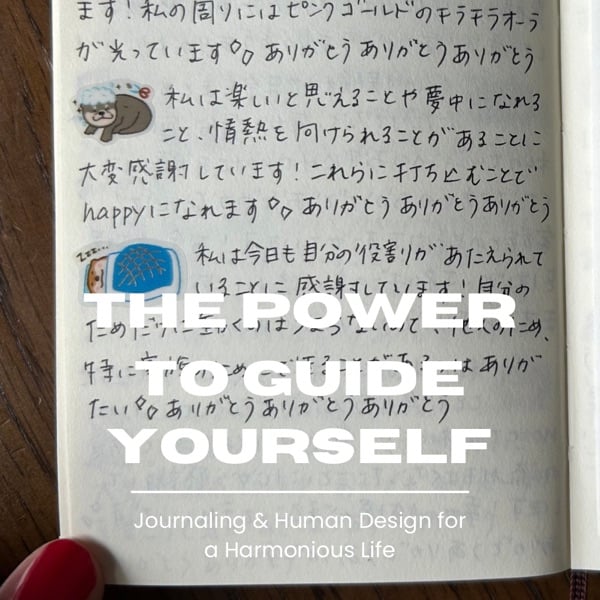 ます！私の周りにはピンクゴールドのキラキラオーラ
が光っています ありがとう ありがとう ありがとう
私は楽しいと思えることや夢中になれる
こと、情熱を向けられることがあることに
大変感謝しています！これらに打ち込むことで
happyになれます ありがとう ありがとう ありがとう
zzz...
私は今日も自分の役割りがあたえられて
いることに感謝しています！自分の
THE POWER
ために
特に ために ことがある は ありが
TO GUIDE
たい ありがとう ありがとう ありがとう
YOURSELF
Journaling & Human Design for
a Harmonious Life